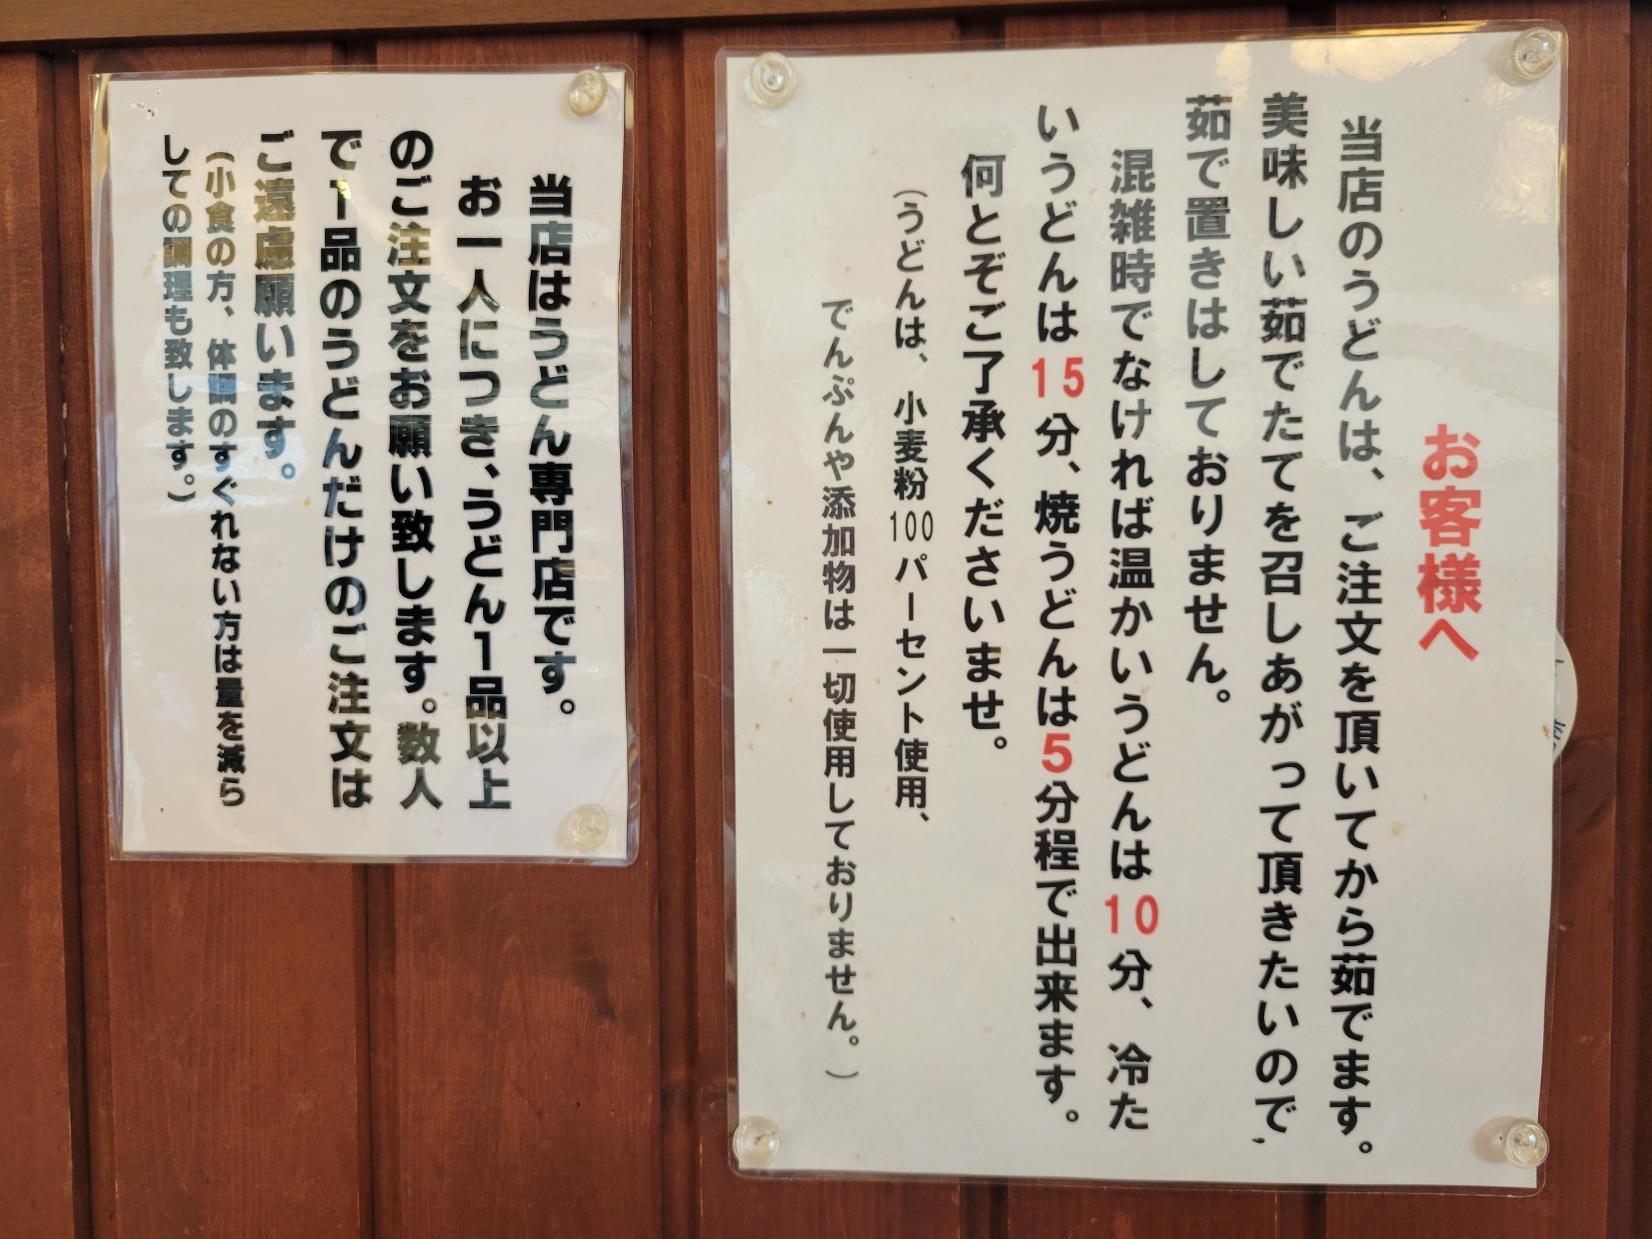 お客様へ
当店のうどんは、ご注文を頂いてから茹でます。
美味しい茹でたてを召しあがって頂きたいので、
茹で置きはしておりません。
混雑時でなければ温かいうどんは10分、冷た
いうどんは15分、焼うどんは5分程で出来ます。
何とぞご了承くださいませ。
(うどんは、小麦粉100パーセント使用、
でんぷんや添加物は一切使用しておりません。)
当店はうどん専門店です。
お一人につき、うどん1品以上
のご注文をお願い致します。数人
で1品のうどんだけのご注文は
ご遠慮願います。
(小食の方、体調のすぐれない方は量を減ら
しての調理も致します。)